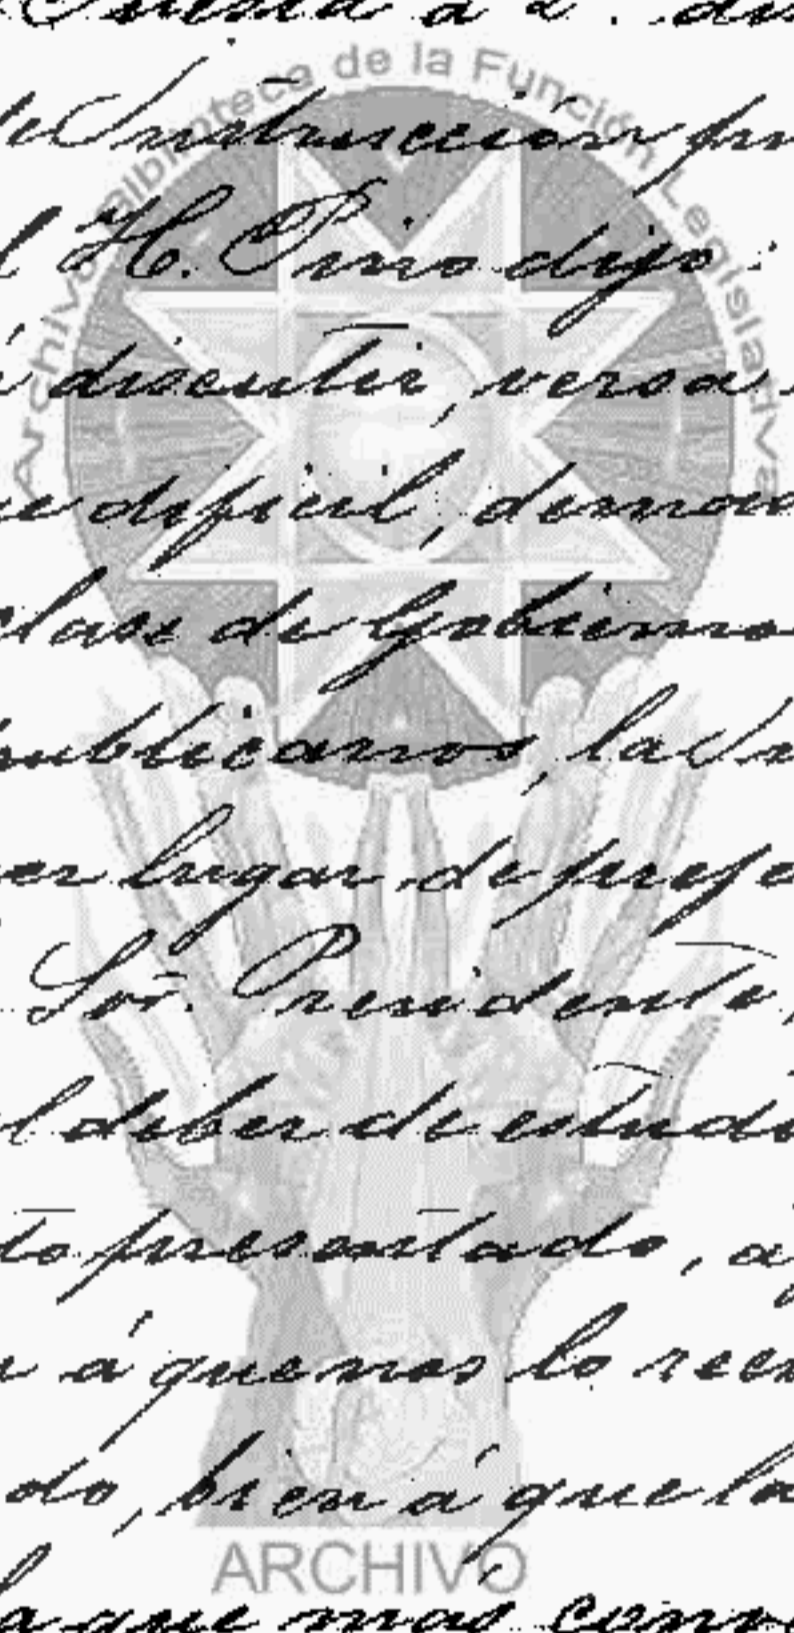 á 2ª. dis
de Instrucción pú
l H. Pino dijo:
discutir, versa
difícil, demos
clase de Gobierno
publicanos, la In
er lugar de prefe
Sor. Presidente,
l deber de estudi
to presentado, á
á que nos lo reem
do, bien á que la
que mas conv
Archivo Biblioteca de la Función Legislativa
ARCHIVO